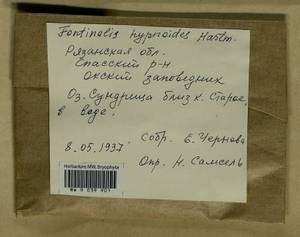 Fontinalis hypnoides Hartm.
Рязанская обл.
Спасский р-н
Окский заповедник
Оз. Сундрица близ к. Старое,
в воде.
Собр. Е. Чернова
8.05.1937
Опр. Н. Самсель
Herbarium MW, Bryophyta